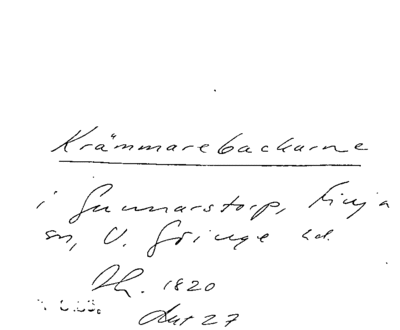 Krämmarebackarne
i Gunnarstorp, Finja
sn, V. Göinge hd.
Dh. 1820
Akt 27